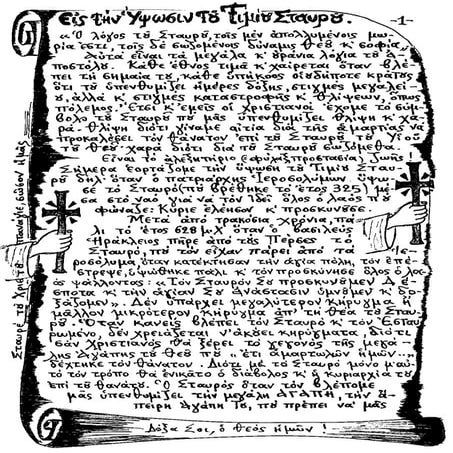 Εἰς τὴν Ὕψωσιν τοῦ Τιμίου Σταυροῦ. -1-
"Ὁ λόγος τοῦ Σταυροῦ, τοῖς μὲν ἀπολλυμένοις μωρία ἐστί, τοῖς δὲ σωζομένοις δύναμις Θεοῦ κ' σοφία".
Αὐτὰ εἶναι τὰ μεγάλα κ' οὐράνια λόγια τοῦ Ἀποστόλου. Κάθε ἔθνος τιμᾶ κ' χαίρεται ὅταν βλέπει τὴ σημαία του, κάθε ὑπήκοος οἱουδήποτε κράτους
ὅτι τοῦ ὑπενθυμίζει ἡμέρες δόξης, στιγμὲς μεγαλείου, ἀλλὰ κ' στιγμὲς καταστροφῆς κ' θλίψεων, ὅπως
πόλεμος. Ἔτσι κ' ἐμεῖς οἱ χριστιανοὶ ἔχομε τὸ σύμβολο τοῦ Σταυροῦ ποὺ μᾶς ὑπενθυμίζει θλίψη κ' χαρά.
θλίψη διότι γίναμε αἰτία διὰ τῆς ἁμαρτίας νὰ προκαλέσει τὸν θάνατον ἐπὶ τοῦ Σταυροῦ τοῦ Υἱοῦ
τοῦ Θεοῦ· χαρὰ διότι διὰ τοῦ Σταυροῦ σωζόμεθα.
Εἶναι τὸ ἀλεξητήριο ζωῆς
Σήμερα ἑορτάζομε τὴν ὕψωση τοῦ Τιμίου Σταυροῦ δηλ. ὅταν ὁ πατριάρχης Ἱεροσολύμων ὕψωσε τὸ Σταυρὸ (ποὺ βρέθηκε τὸ ἔτος 325) μέσα στὸ ναὸ γιὰ νὰ τὸν ἰδεῖ ὅλος ὁ λαὸς ποὺ
φώναζε: Κύριε ἐλέησον κ' προσκύνησε.
Μετὰ ἀπὸ τρακόσια χρόνια, πάλι τὸ ἔτος 628 μ.Χ. ὅταν ὁ βασιλεὺς
Ἡράκλειος πῆρε ἀπὸ τοὺς Πέρσες τὸ
Σταυρό, ποὺ τὸν εἶχαν πάρει ἀπὸ τὰ
Ἱεροσόλυμα, ὅταν κατέκτησαν τὴν ἁγία πόλη, τὸν ἐπέστρεψε, ὑψώθηκε πάλι κ' τὸν προσκύνησε ὅλος ὁ λαὸς ψάλλοντας: "Τὸν Σταυρόν Σου προσκυνοῦμεν Δέσποτα κ' τὴν ἁγίαν Σου Ἀνάστασιν ὑμνοῦμεν κ' δοξάζομεν". Δὲν ὑπάρχει μεγαλύτερον κήρυγμα ἢ
μᾶλλον μικρότερον κήρυγμα ἀπ' τὴ θέα τοῦ Σταυροῦ. Ὅταν κανεὶς βλέπει τὸν Σταυρὸ κ' τὸν Ἐσταυρωμένο, δὲν χρειάζεται ν' ἀκούει κηρύγματα, διότι
ἐὰν Χριστιανὸς θὰ ξέρει τὸ γεγονὸς τῆς μεγάλης Ἀγάπης τοῦ Θεοῦ ποὺ "ἔτι ἁμαρτωλῶν ἡμῶν..."
δέχτηκε τὸν θάνατον. Διότι μὲ τὸ Σταυρὸ μόνο μ' αὐτὸ τὸν τρόπο θὰ ἐνικᾶτο ὁ διάβολος κ' ἡ κυριαρχία του
ἐπὶ τοῦ θανάτου. Ὁ Σταυρὸς ὅταν τὸν βλέπομε
μᾶς ὑπενθυμίζει τὴν μεγάλη ΑΓΑΠΗ, τὴν ἄπειρη Ἀγάπη Του, ποὺ πρέπει νὰ μᾶς
Δόξα Σοι, ὁ Θεὸς ἡμῶν!
Σταυρὲ τοῦ Χριστοῦ πανάγιε, σῶσον ἡμᾶς